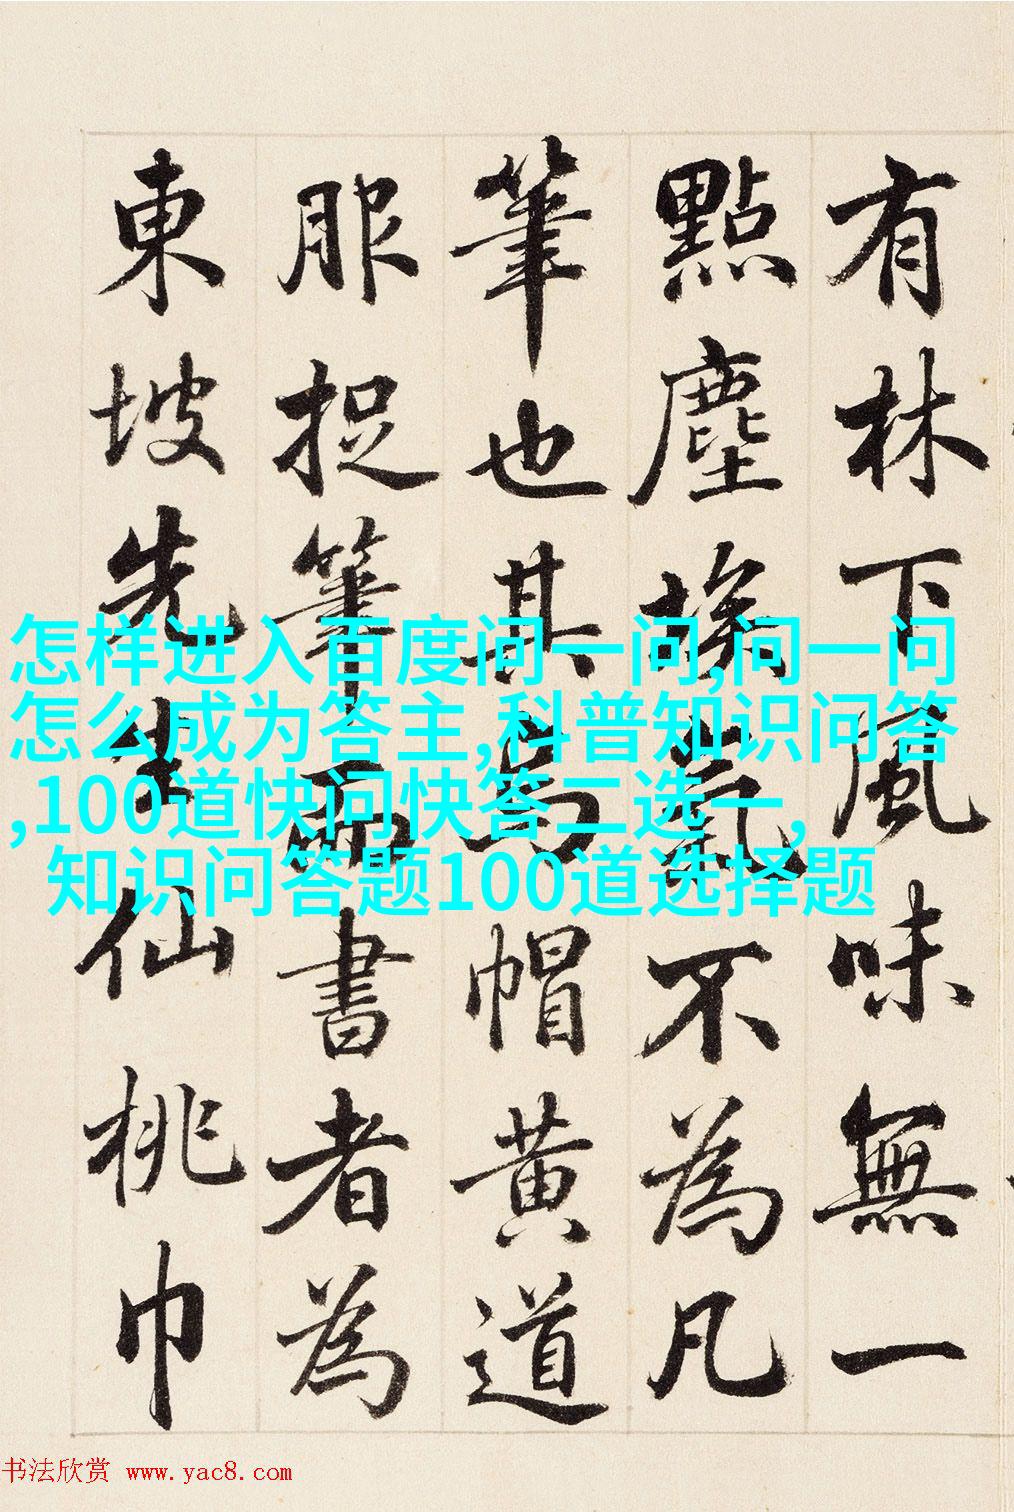 有林下風味無一
點塵埃氣不為凡
筆也其為帽黄道
服捉筆而書者為
東坡先生仙桃巾
怎样进入百度问一问,问一问
怎么成为答主,科普知识问答
,100道快问快答二选一,
知识问答题100道选择题
书法欣赏 www.yac8.com